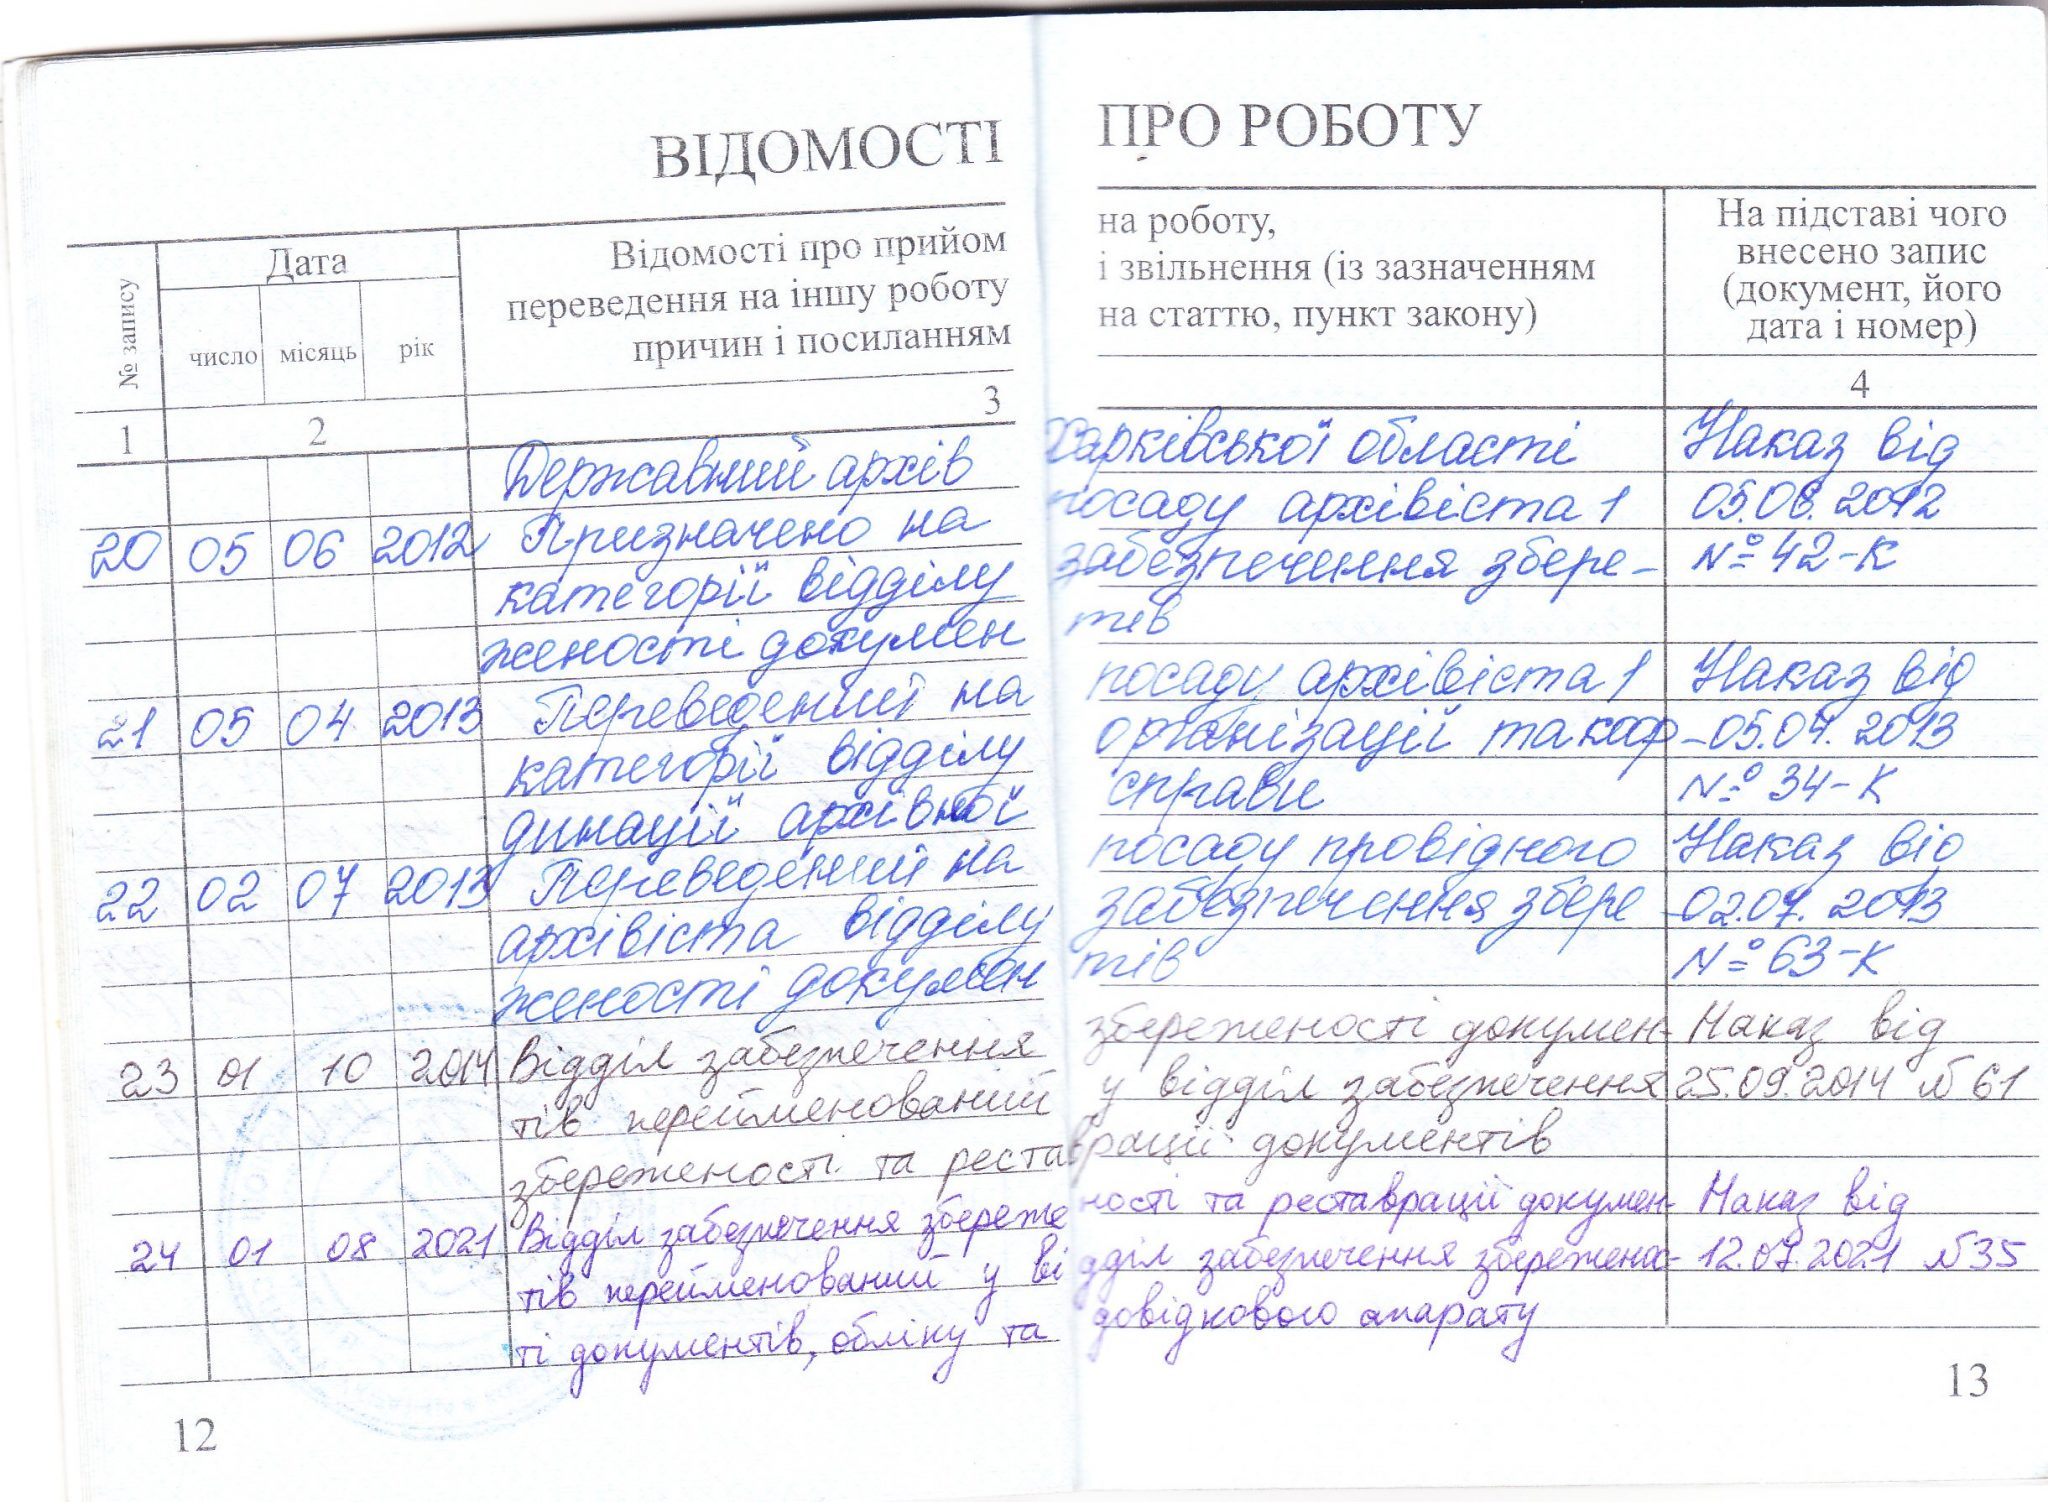 ВІДОМОСТІ ПРО РОБОТУ
№ запису
Дата
число місяць рік
Відомості про прийом на роботу,
переведення на іншу роботу і звільнення (із зазначенням
причин і посиланням на статтю, пункт закону)
На підставі чого
внесено запис
(документ, його
дата і номер)
1 2 3 4
Державний архів Харківської області Наказ від
20 05 06 2012 Призначено на посаду архівіста 1 05.06.2012
категорії відділу забезпечення збере- № 42-К
женості докумен тів
21 05 04 2013 Переведений на посаду архівіста 1 Наказ від
категорії відділу організації та коор- 05.04.2013
динації архівної справи № 34-К
22 02 07 2013 Переведений на посаду провідного Наказ від
архівіста відділу забезпечення збере- 02.07.2013
женості докумен тів № 63-К
23 01 10 2014 Відділ забезпечення збереженості докумен- Наказ від
тів перейменований у відділ забезпечення 25.09.2014 №61
збереженості та реставрації документів
24 01 08 2021 Відділ забезпечення збереженості та реставрації докумен- Наказ від
тів перейменований у відділ забезпечення збереженос- 12.07.2021 №35
ті документів, обліку та довідкового апарату
12 13